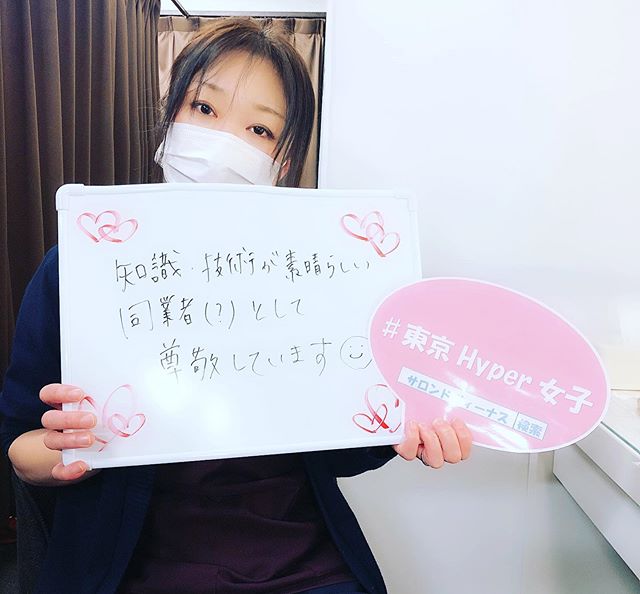 知識・技術が素晴らしい
同業者(?)として
尊敬しています
#東京Hyper女子
サロンドヴィーナス 検索